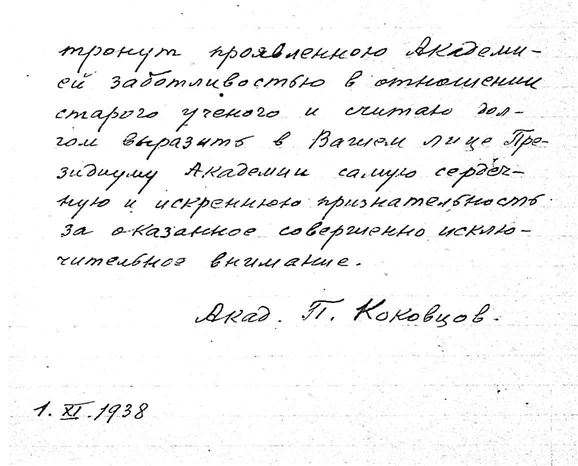 тронут проявленною Академи-
ей заботливостью в отношении
старого ученого и считаю дол-
гом выразить в Вашем лице Пре-
зидиуму Академии самую сердеч-
ную и искреннюю признательность
за оказанное совершенно исклю-
чительное внимание.
Акад. П. Коковцов.
1. XI. 1938